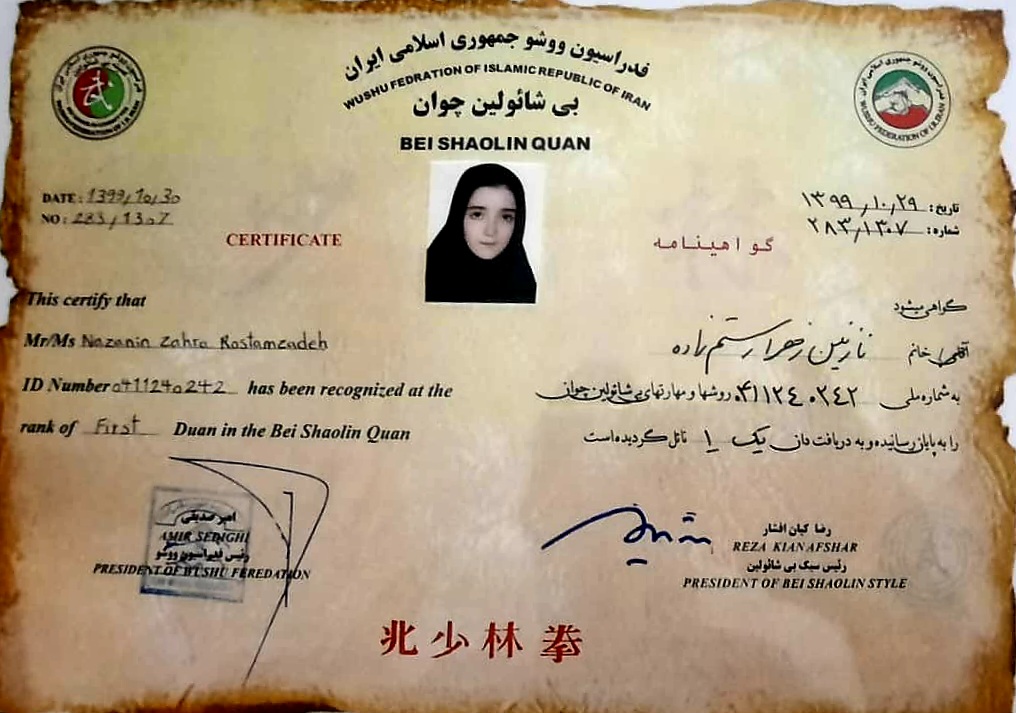 فدراسیون ووشو جمهوری اسلامی ایران
WUSHU FEDRATION OF ISLAMIC REPUBLIC OF IRAN
بی شائولین چوان
BEI SHAOLIN QUAN
DATE: 1399/10/30
NO: 283/1307
تاریخ: ۱۳۹۹/۱۰/۲۹
شماره: ۲۸۳/۱۳۰۷
CERTIFICATE
گواهینامه
This certify that
Mr/Ms Nazanin Zahra Rostamzadeh
ID Number 0411240242 has been recognized at the
rank of First Duan in the Bei Shaolin Quan
گواهی میشود
آقای/خانم نازنین زهرا رستم زاده
به شماره ملی ۰۴۱۱۲۴۰۲۴۲ روشها و مهارتهای بی شائولین چوان
را به پایان رسانیده و به دریافت دان یک ۱ نائل گردیده است
امیر صدیقی
AMIR SEDIGHI
رئیس فدراسیون ووشو
PRESIDENT OF WUSHU FEREDATION
رضا کیان افشار
REZA KIANAFSHAR
رئیس سبک بی شائولین
PRESIDENT OF BEI SHAOLIN STYLE
兆少林拳